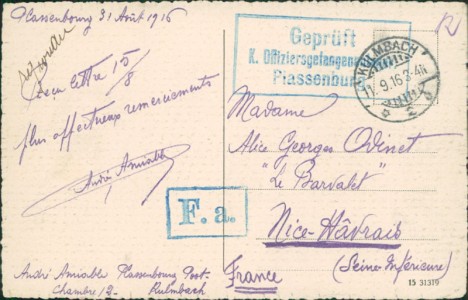 Plassenbourg 31 Août 1916
Recu lettre 15/8
plus affectueux remerciements
André Amiable
André Amiable Plassenbourg Post.
Chambre 12 - Kulmbach
Geprüft
K. Offiziersgefangenen
Plassenburg
KULMBACH
11 9.16.3-4N
F. a.
Madame
Alice Georges Odinet
"Le Barvalet"
Nice-Hâvrais
(Seine Inférieure)
France
15 31310